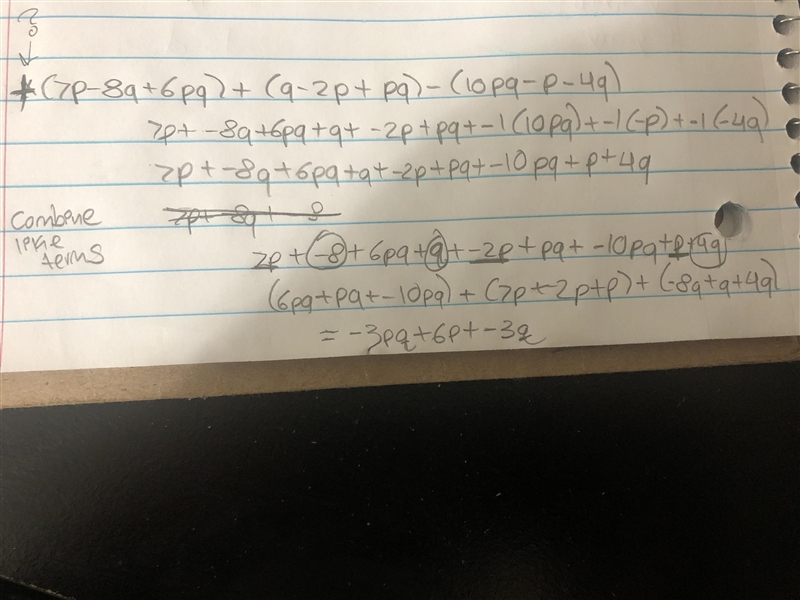 ?
↓
+(7p-8q+6pq)+(q-2p+pq)-(10pq-p-4q)
7p+-8q+6pq+q+-2p+pq+-1(10pq)+-1(-p)+-1(-4q)
7p+-8q+6pq+q+-2p+pq+-10pq+p+4q
Combene
like
terms
7p+-8+6pq+q+-2p+pq+-10pq+p+4q
(6pq+pq+-10pq)+(7p+-2p+p)+(-8q+q+4q)
=-3pq+6p+-3q